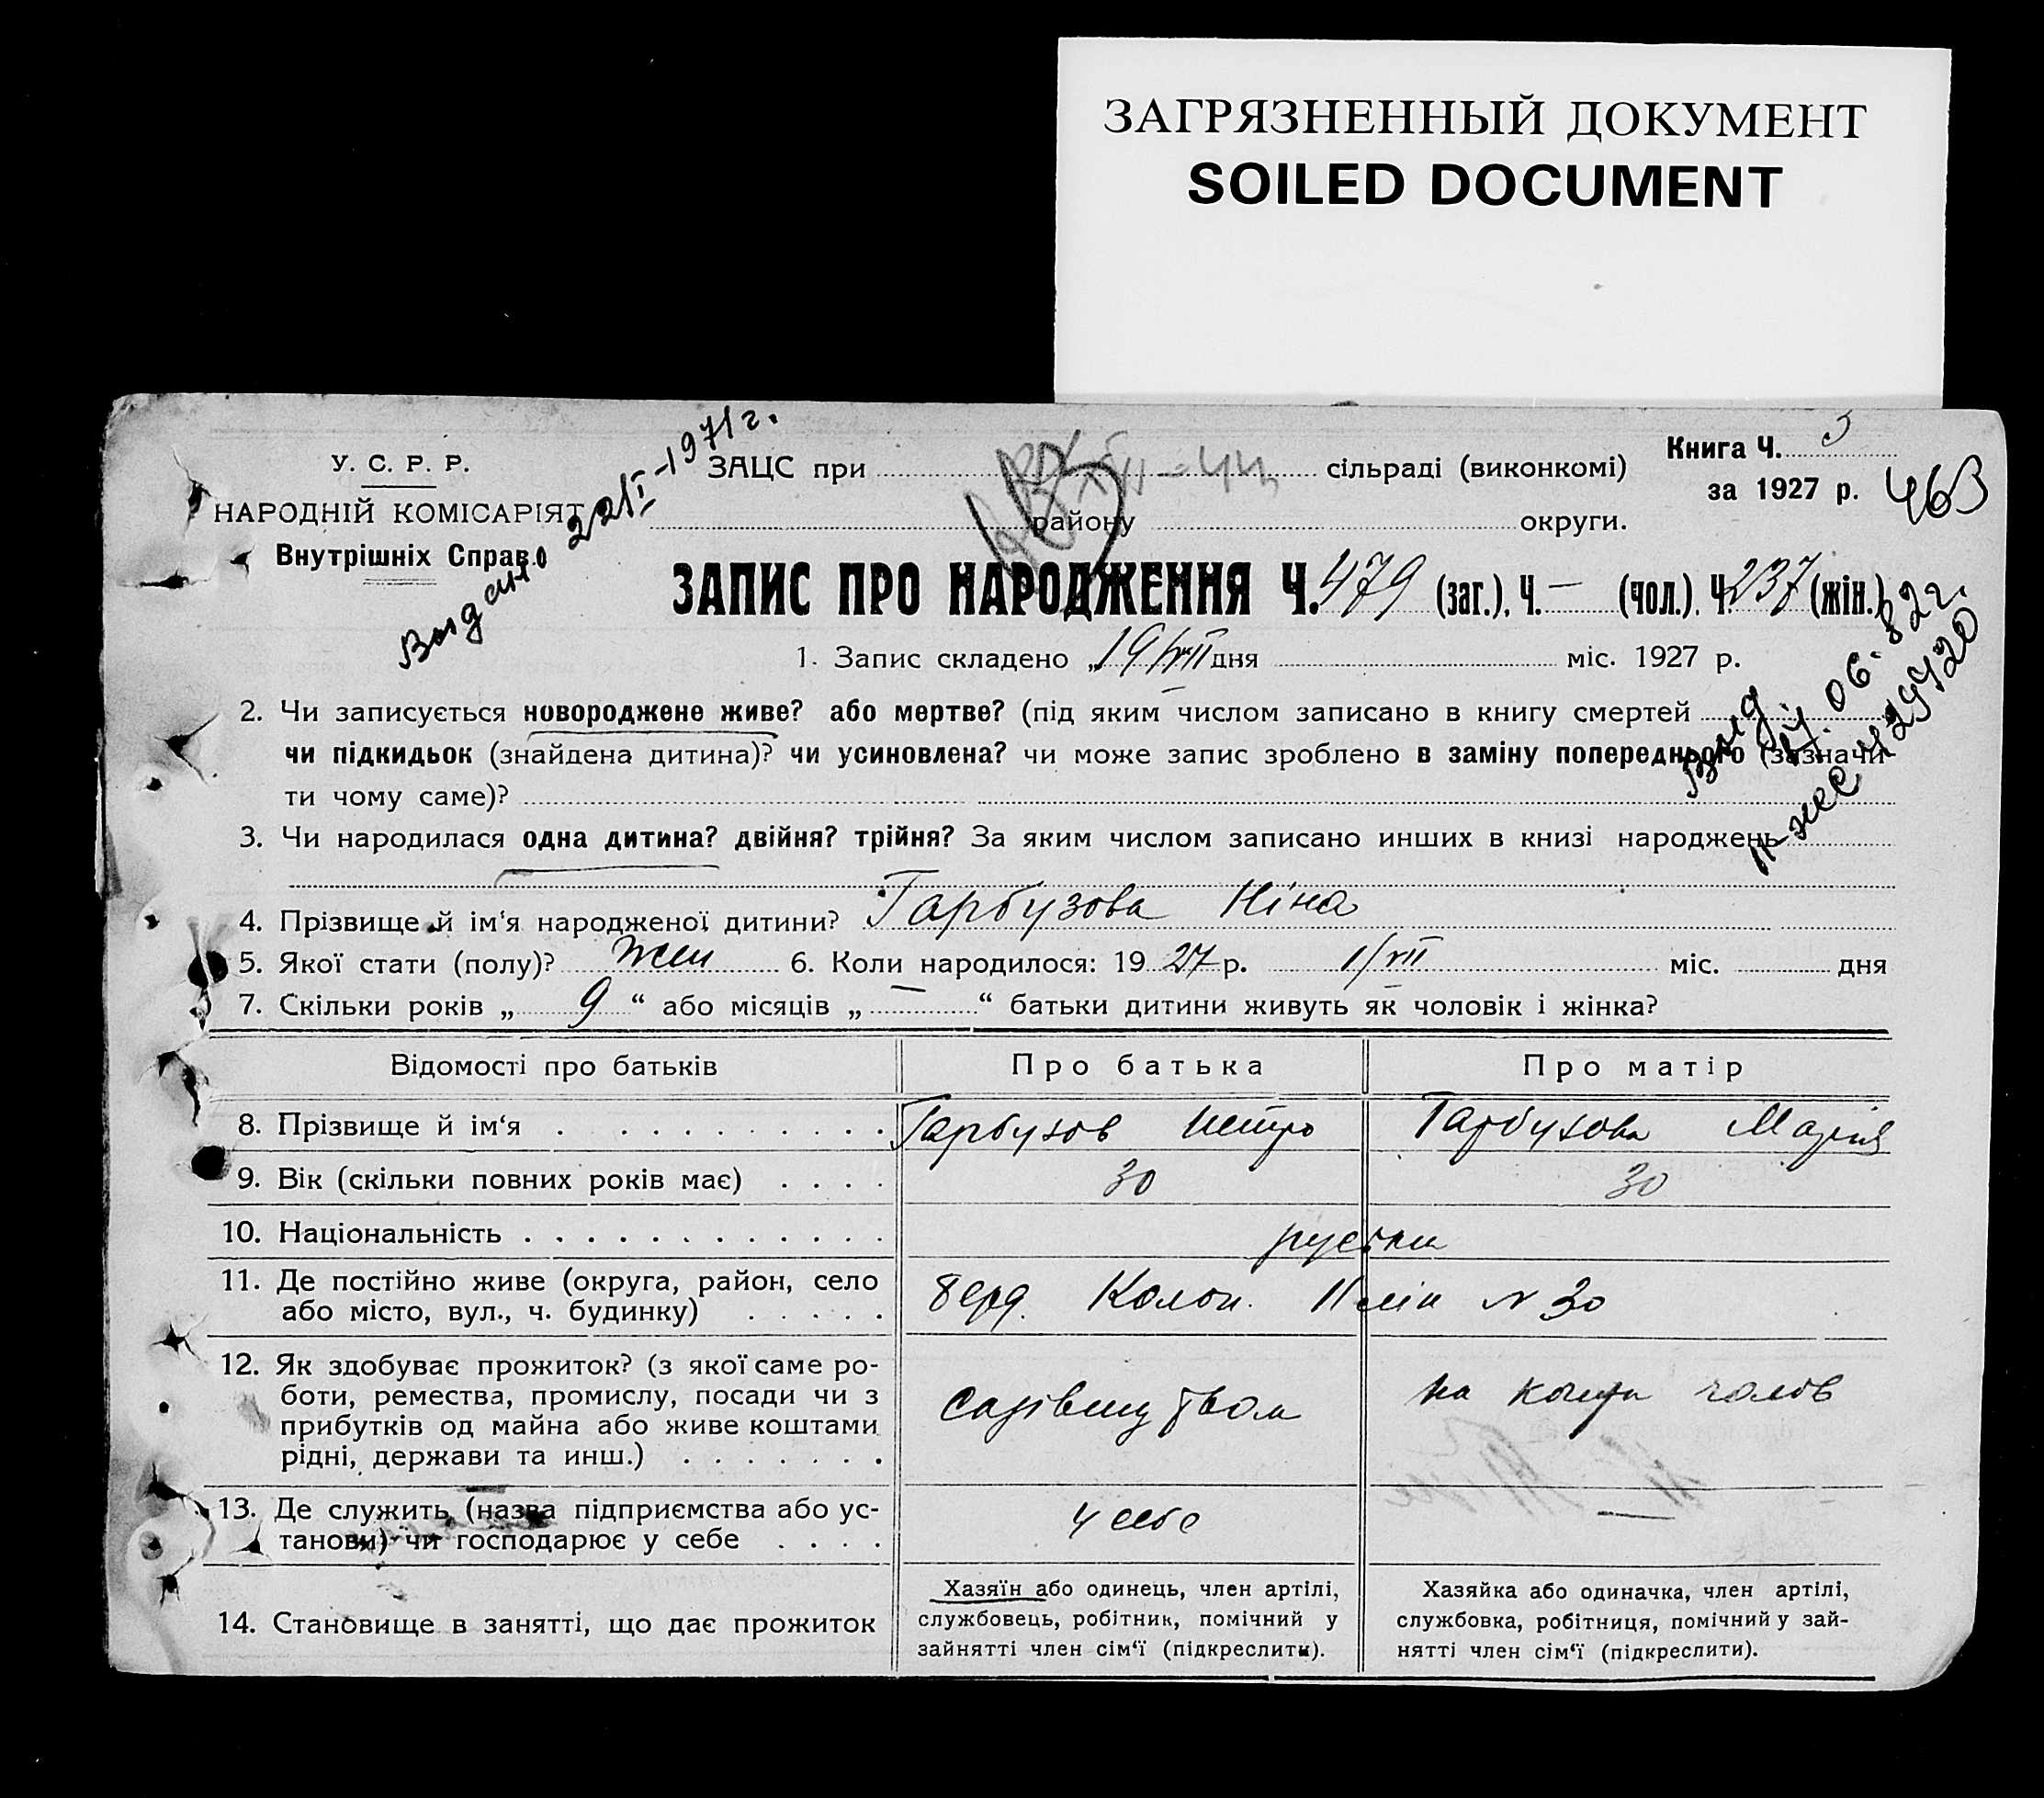 ЗАГРЯЗНЕННЫЙ ДОКУМЕНТ
SOILED DOCUMENT
У. С. Р. Р.
НАРОДНІЙ КОМІСАРІЯТ
Внутрішніх Справ.
Выдан 22/I-1971 г.
ЗАЦС при сільраді (виконкомі)
району округи.
Книга Ч. 3
за 1927 р. 463
ЗАПИС ПРО НАРОДЖЕННЯ Ч. 479 (заг.), Ч. — (чол.). Ч. 237 (жін.)
1. Запис складено „19/VII дня міс. 1927 р.
2. Чи записується новороджене живе? або мертве? (під яким числом записано в книгу смертей
чи підкидьок (знайдена дитина)? чи усиновлена? чи може запис зроблено в заміну попереднього (зазначи-
ти чому саме)?
3. Чи народилася одна дитина? двійня? трійня? За яким числом записано инших в книзі народжень
4. Прізвище й ім‘я народженої дитини? Гарбузова Ніна
5. Якої стати (полу)? жен 6. Коли народилося: 19 27 р. 1/VII міс. дня
7. Скільки років „ 9 “ або місяців „ — “ батьки дитини живуть як чоловік і жінка?
Відомості про батьків Про батька Про матір
8. Прізвище й ім‘я Гарбузов Петро Гарбузова Марія
9. Вік (скільки повних років має) 30 30
10. Національність руські
11. Де постійно живе (округа, район, село
або місто, вул., ч. будинку) Берд. Колон. N 30
12. Як здобуває прожиток? (з якої саме ро-
боти, ремества, промислу, посади чи з
прибутків од майна або живе коштами
рідні, держави та инш.) Садівництвом на кошти чолов
13. Де служить (назва підприємства або ус-
танови) чи господарює у себе у себе —
14. Становище в занятті, що дає прожиток
Хазяїн або одинець, член артілі,
службовець, робітник, помічний у
зайнятті член сім‘ї (підкреслити).
Хазяйка або одиначка, член артілі,
службовка, робітниця, помічний у зай-
нятті член сім‘ї (підкреслити).